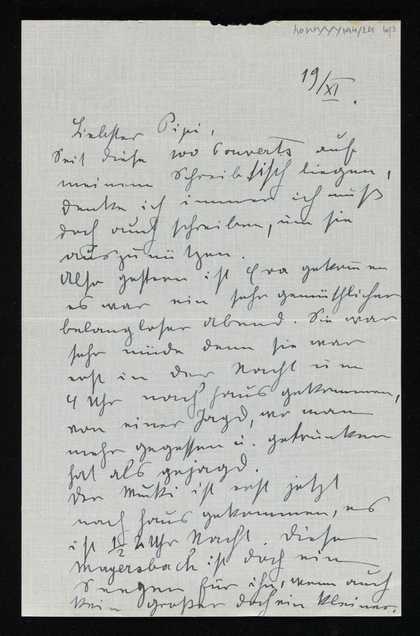 19/XI.
Liebster Pipi,
Seit diese 100 Couverts auf
meinem Schreibtisch liegen,
denke ich immer ich muß
doch auch schreiben, um sie
auszunützen.
Also gestern ist Eva gekommen
es war ein sehr gemüthlicher
belangloser Abend. Sie war
sehr müde denn sie war
erst in der Nacht um
4 Uhr nach haus gekommen,
von einer Jagd, wo man
mehr gegessen u. getrunken
hat als gejagd.
Der Muki ist erst jetzt
nach haus gekommen, es
ist ½ 2 Uhr Nacht. Diese
Mayersbach ist doch ein
Seegen für ihn, wenn auch
kein großer doch ein kleiner.